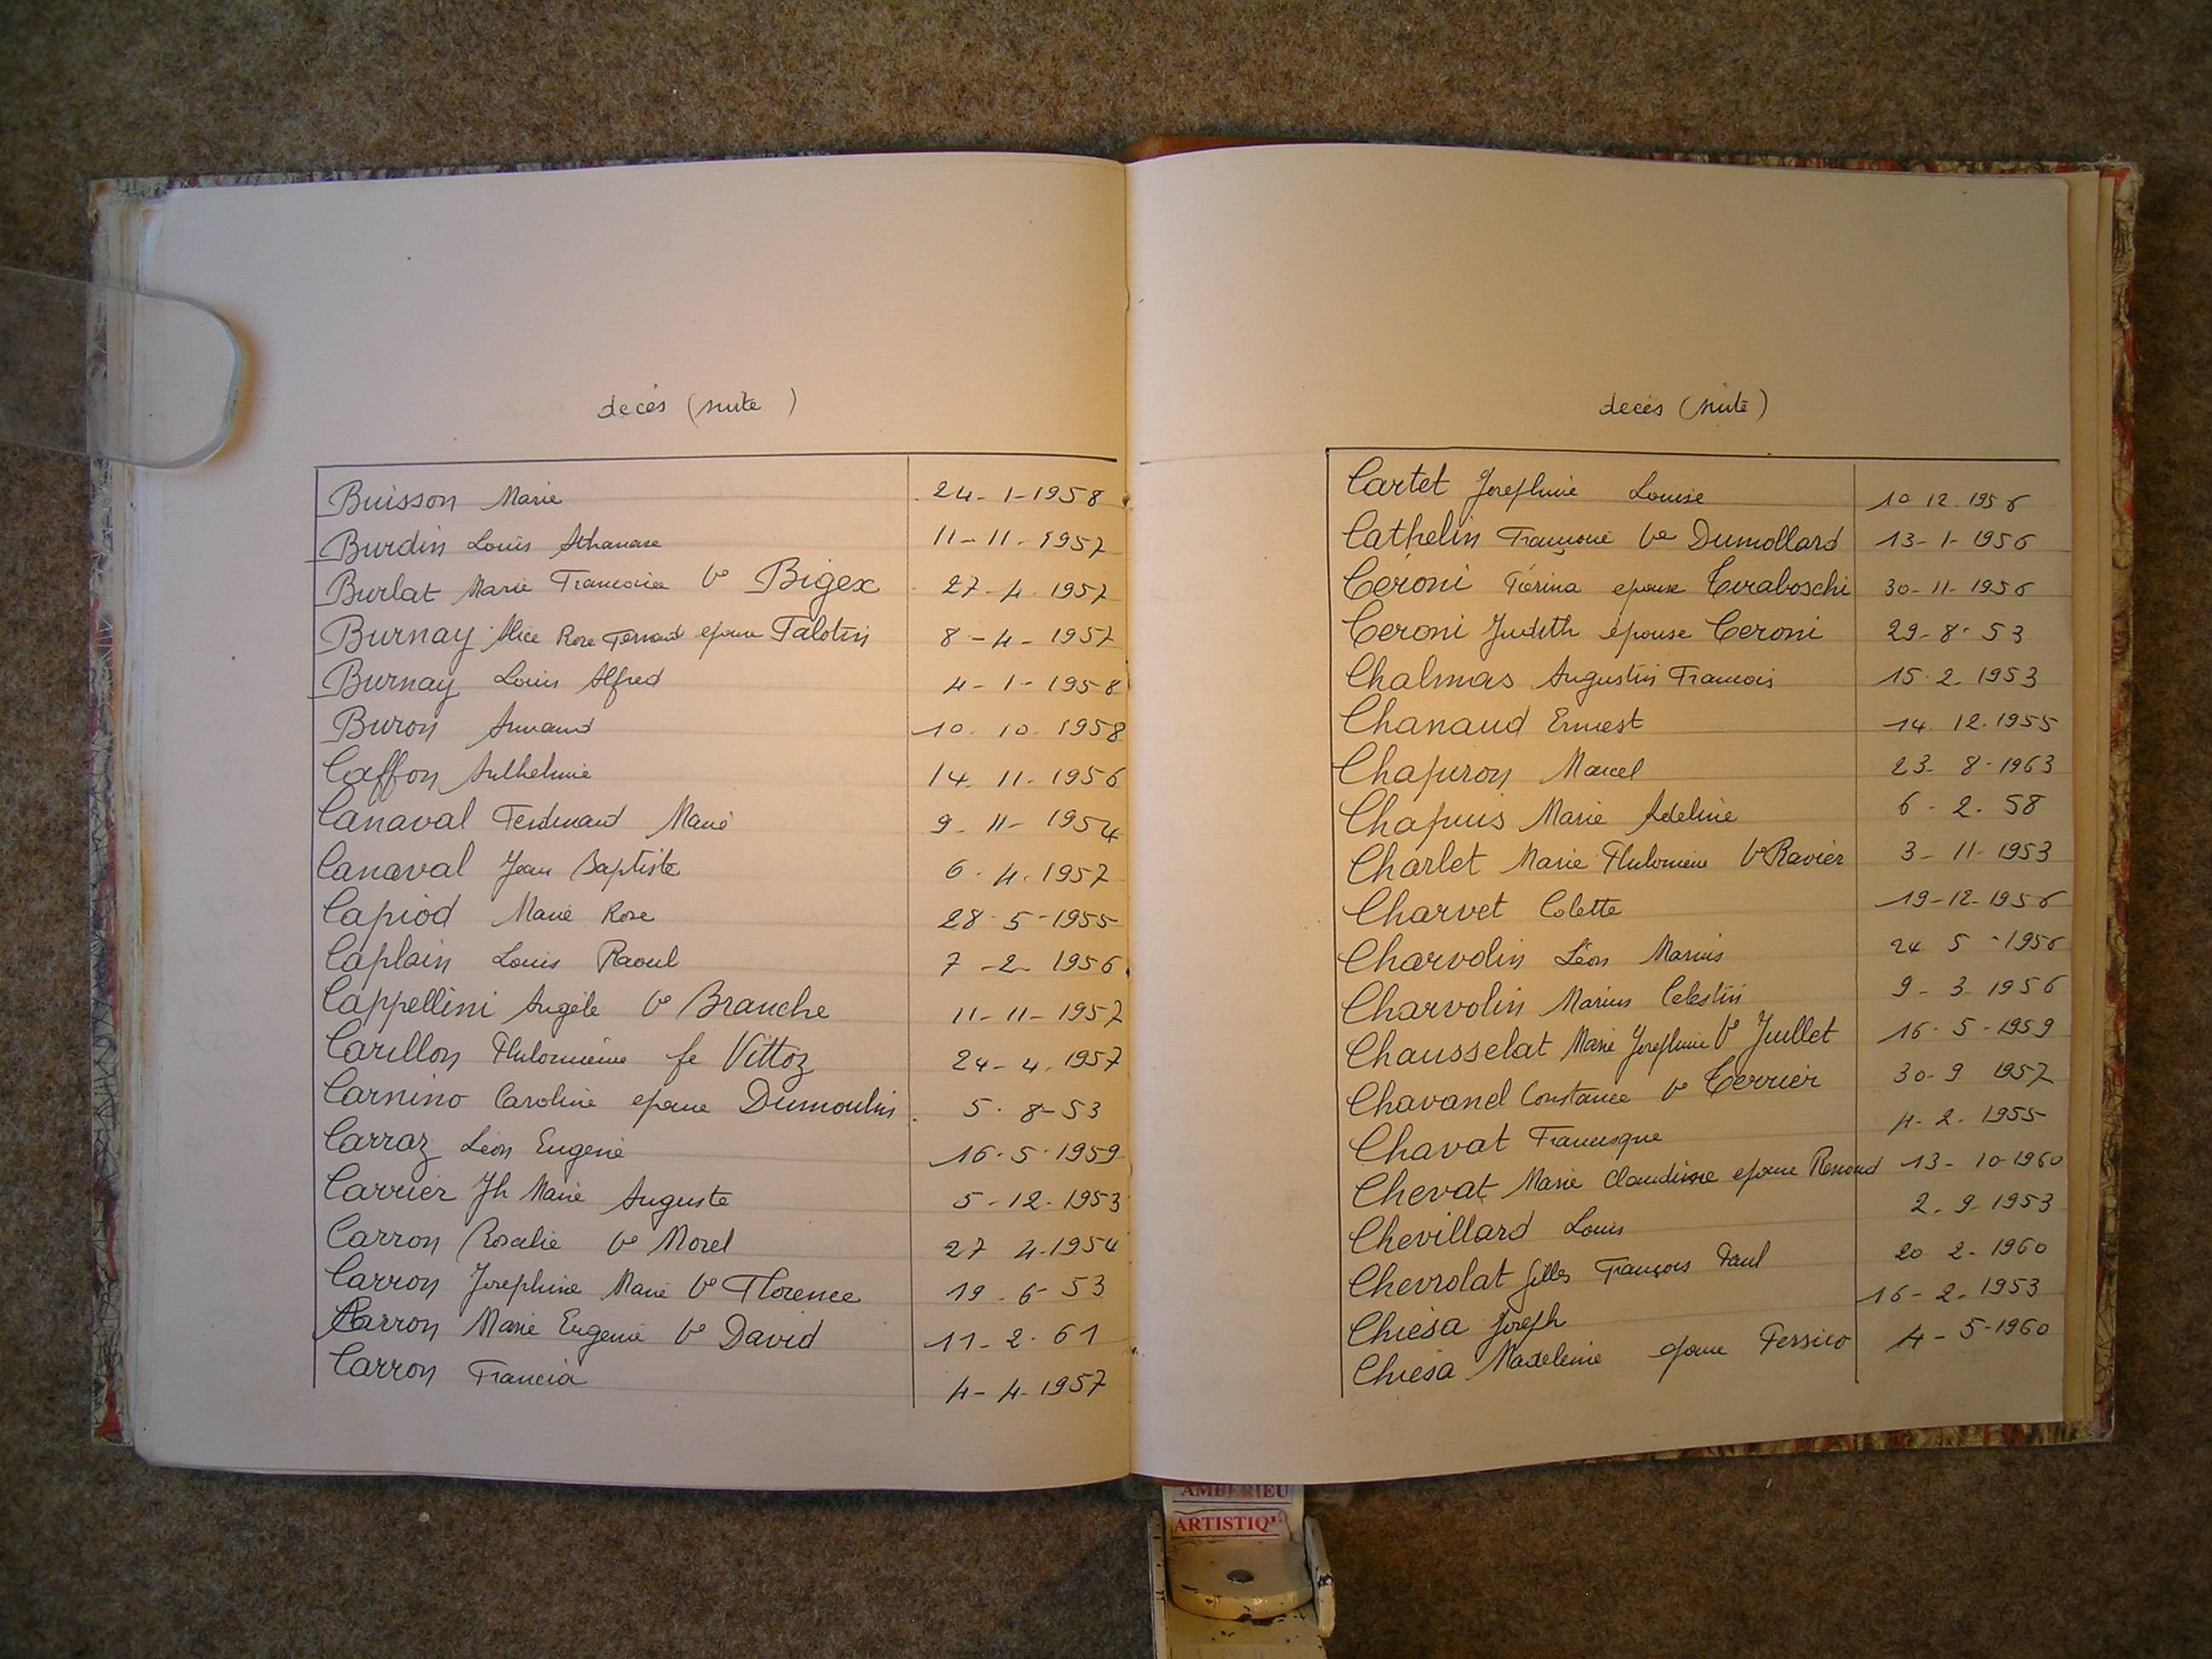 decès (suite)
Buisson Marie 24-1-1958
Burdin Louis Athanase 11-11-1957
Burlat Marie Francoise Ve Bigex 27-4-1957
Burnay Alice Rose Fernand epouse Talotin 8-4-1957
Burnay Louis Alfred 4-1-1958
Buron Armand 10.10.1958
Caffon Anthelmie 14.11.1956
Canaval Ferdinand Marie 9-11-1954
Canaval Jean Baptiste 6.4.1957
Capiod Marie Rose 28-5-1955
Caplain Louis Raoul 7-2-1956
Cappellini Angèle Ve Branche 11-11-1957
Carillon Philomène fe Vittoz 24-4.1957
Carnino Caroline epouse Dumoulin 5.8-53
Carraz Léon Eugène 16.5.1959
Carrier Jh Marie Auguste 5-12-1953
Carron Rosalie Ve Morel 27 4-1954
Carron Josephine Marie Ve Florence 19-6-53
Carron Marie Eugenie Ve David 11-2-61
Carron Francia 4-4-1957
decès (suite)
Cartet Josephine Louise 10 12.1956
Cathelin Françoise Ve Dumollard 13-1-1956
Céroni Piérina epouse Tiraboschi 30-11-1956
Ceroni Judith épouse Ceroni 29-8-53
Chalmas Augustin Francois 15.2.1953
Chanaud Ernest 14.12.1955
Chaperon Marcel 23-8-1963
Chapuis Marie Adeline 6-2.58
Charlet Marie Philomène Ve Ravier 3-11-1953
Charvet Colette 19-12-1956
Charvolin Léon Marius 24 5-1956
Charvolin Marius Celestin 9-3-1956
Chausselat Marie Josephine Ve Juillet 16.5-1959
Chavanel Constance Ve Terrier 30-9 1957
Chavat Francisque 4-2.1955
Chevat Marie Claudine epouse Renoud 13-10-1960
Chevillard Louis 2.9-1953
Chevrolat Gilles François Paul 20 2-1960
Chiésa Joseph 16-2.1953
Chiésa Madeleine epouse Fessico 4-5-1960
AMBERIEU
ARTISTIQ